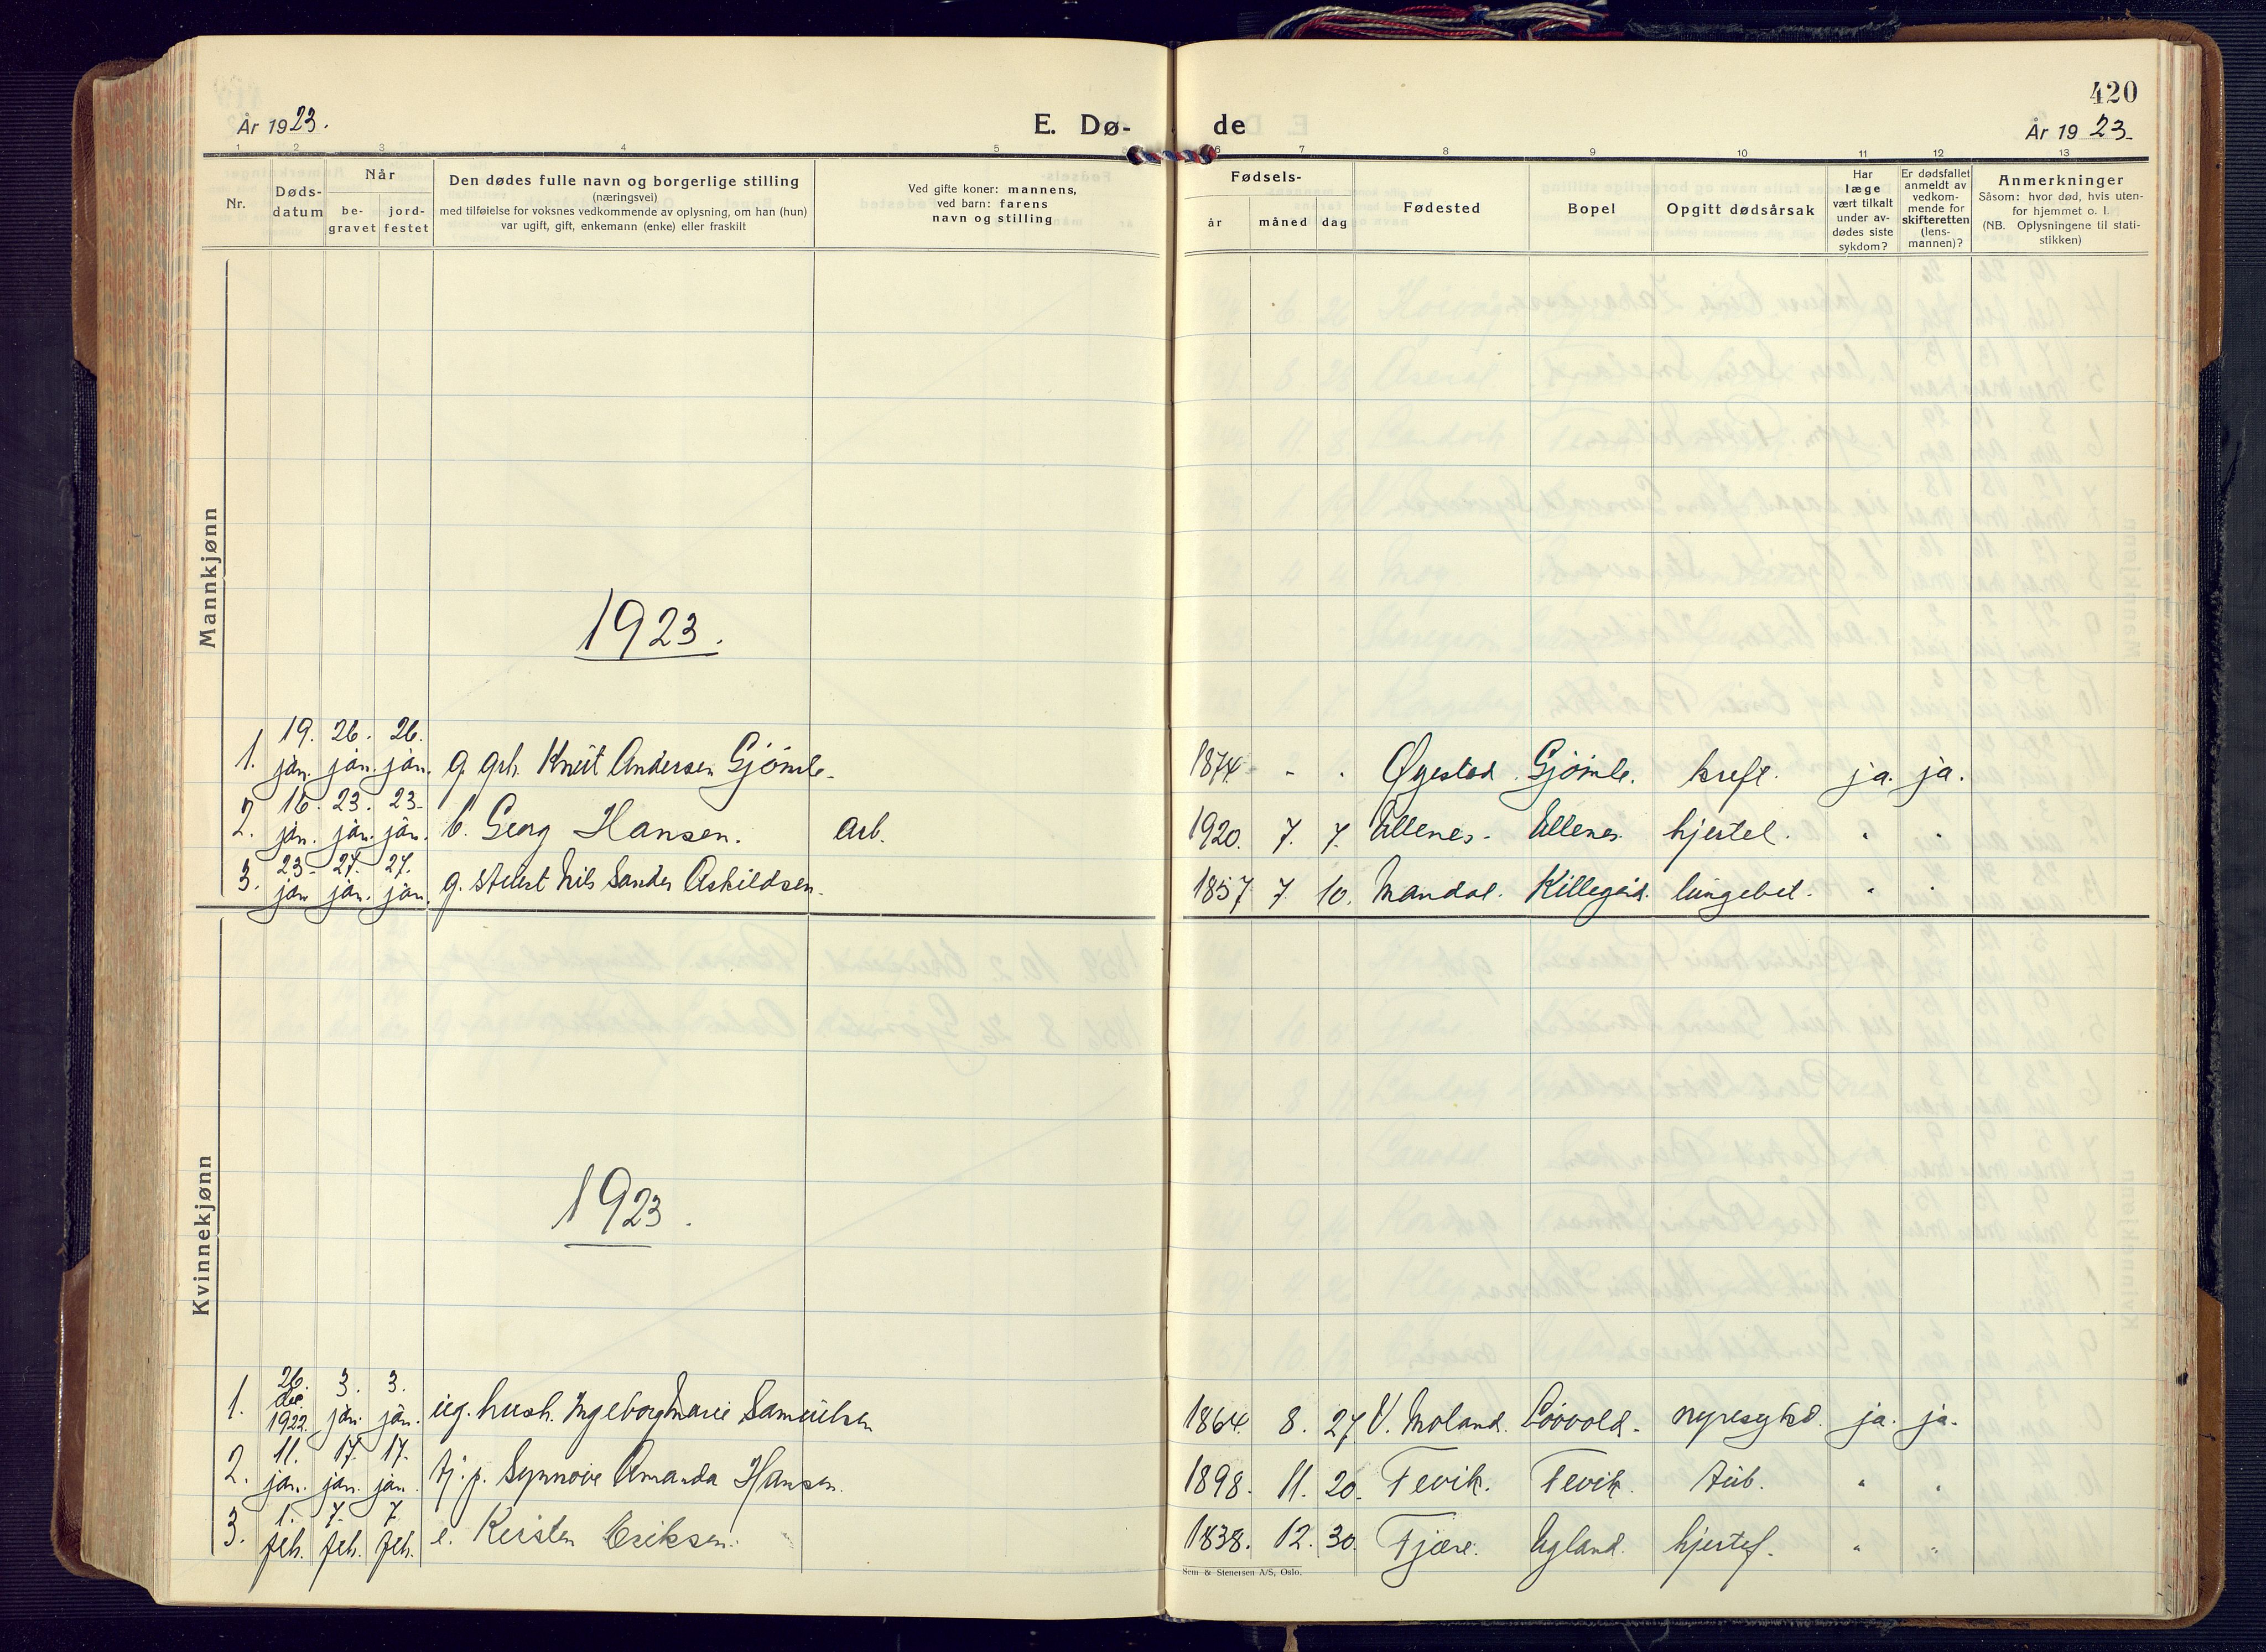 420
År 1923.
E. Dø-
de
År 1923.
1 2 3 4 5 6 7 8 9 10 11 12 13
Nr.
Døds-
datum
Når
be-
gravet
jord-
festet
Den dødes fulle navn og borgerlige stilling
(næringsvei)
med tilføielse for voksnes vedkommende av oplysning, om han (hun)
var ugift, gift, enkemann (enke) eller fraskilt
Ved gifte koner: mannens,
ved barn: farens
navn og stilling
Fødsels-
år måned dag
Fødested
Bopel
Opgitt dødsårsak
Har
læge
vært tilkalt
under av-
dødes siste
sykdom?
Er dødsfallet
anmeldt av
vedkom-
mende for
skifteretten
(lens-
mannen)?
Anmerkninger
Såsom: hvor død, hvis uten-
for hjemmet o. l.
(NB. Oplysningene til stati-
stikken)
Mannkjønn
1923.
1. 19. jan. 26. jan. 26. jan. g. grb. Knut Andersen Gjömle. 1874 - . Øyestad. Gjömle. kreft. ja. ja.
2. 16. jan. 23. jan. 23. jan. b. Georg Hansen. arb. 1920. 7. 7. Ellenes. Ellenes. hjertel. " "
3. 23. jan. 27. jan. 27. jan. g. Nils Sander Askildsen. 1857 7. 10. Mandal. Killegård. lungebet. " "
Kvinnekjønn
1923.
1. 26. dec. 1922. 3. jan. 3. jan. ug. hush. Ingeborg Marie Samuelsen 1864. 8. 27. V. Moland. Lövvold. nyresykd. ja. ja.
2. 11. jan. 17. jan. 17. jan. tj. p. Synnöve Amanda Hansen. 1898. 11. 20. Fevik. Fevik. tub. " "
3. 1. feb. 7. feb. 7. feb. e. Kirsten Eriksen. 1838. 12. 30. Fjære. Ugland. hjertef. " "
Sem & Stenersen A/S, Oslo.